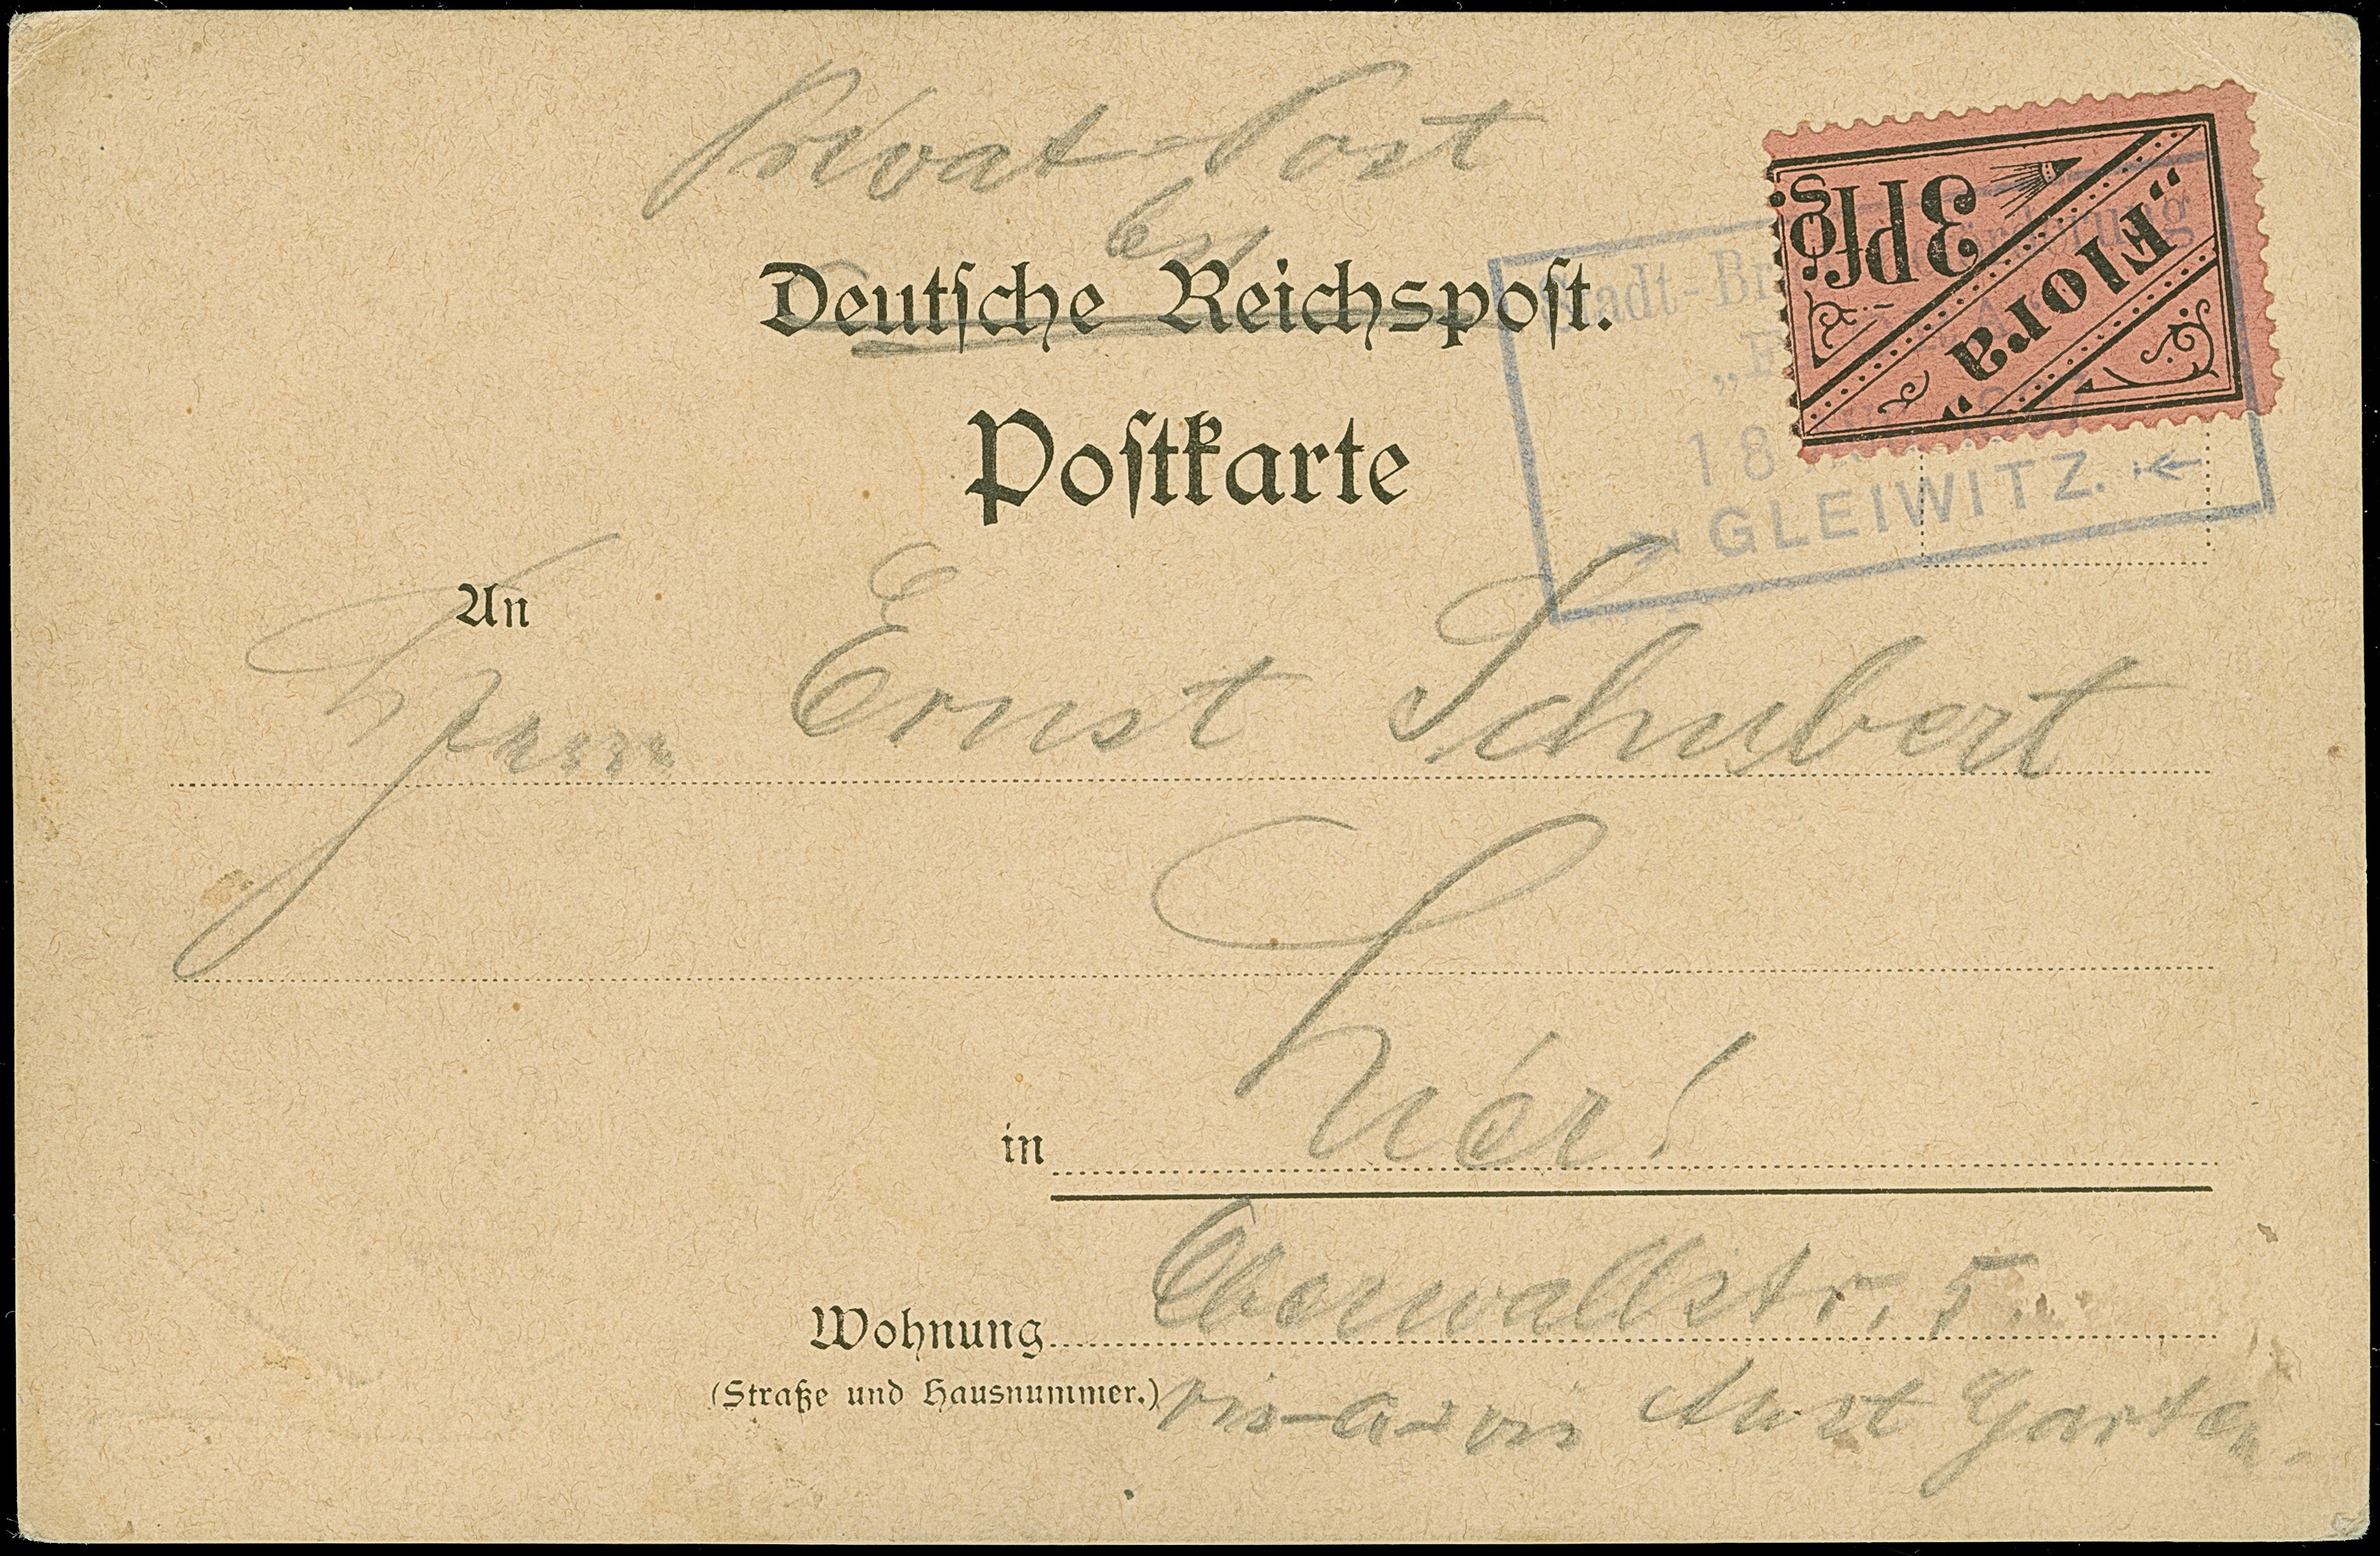 Privat-Post
Deutsche Reichspost.
Postkarte
3 Pfg.
„Flora“
Stadt-Br
18
GLEIWITZ.
An
Herrn Ernst Schubert
in hier!
Wohnung Oberwallstr. 5.
(Straße und Hausnummer.) vis-a-vis Garten.